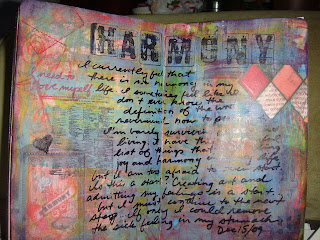 HARMONY
I currently feel that
there is no harmony in my
life. I sometimes feel like I
don't even know the
definition of the word
nevermind how to
I'm barely surviving
living. I have this
list of things that
joy and harmony
but I am too afraid to start.
Is this a start? Creating art and
admitting my feelings is a start.
but I must continue to the next
step. If only I could remove
the sick feeling in my stomach
Dec 15/09
I need to
love myself